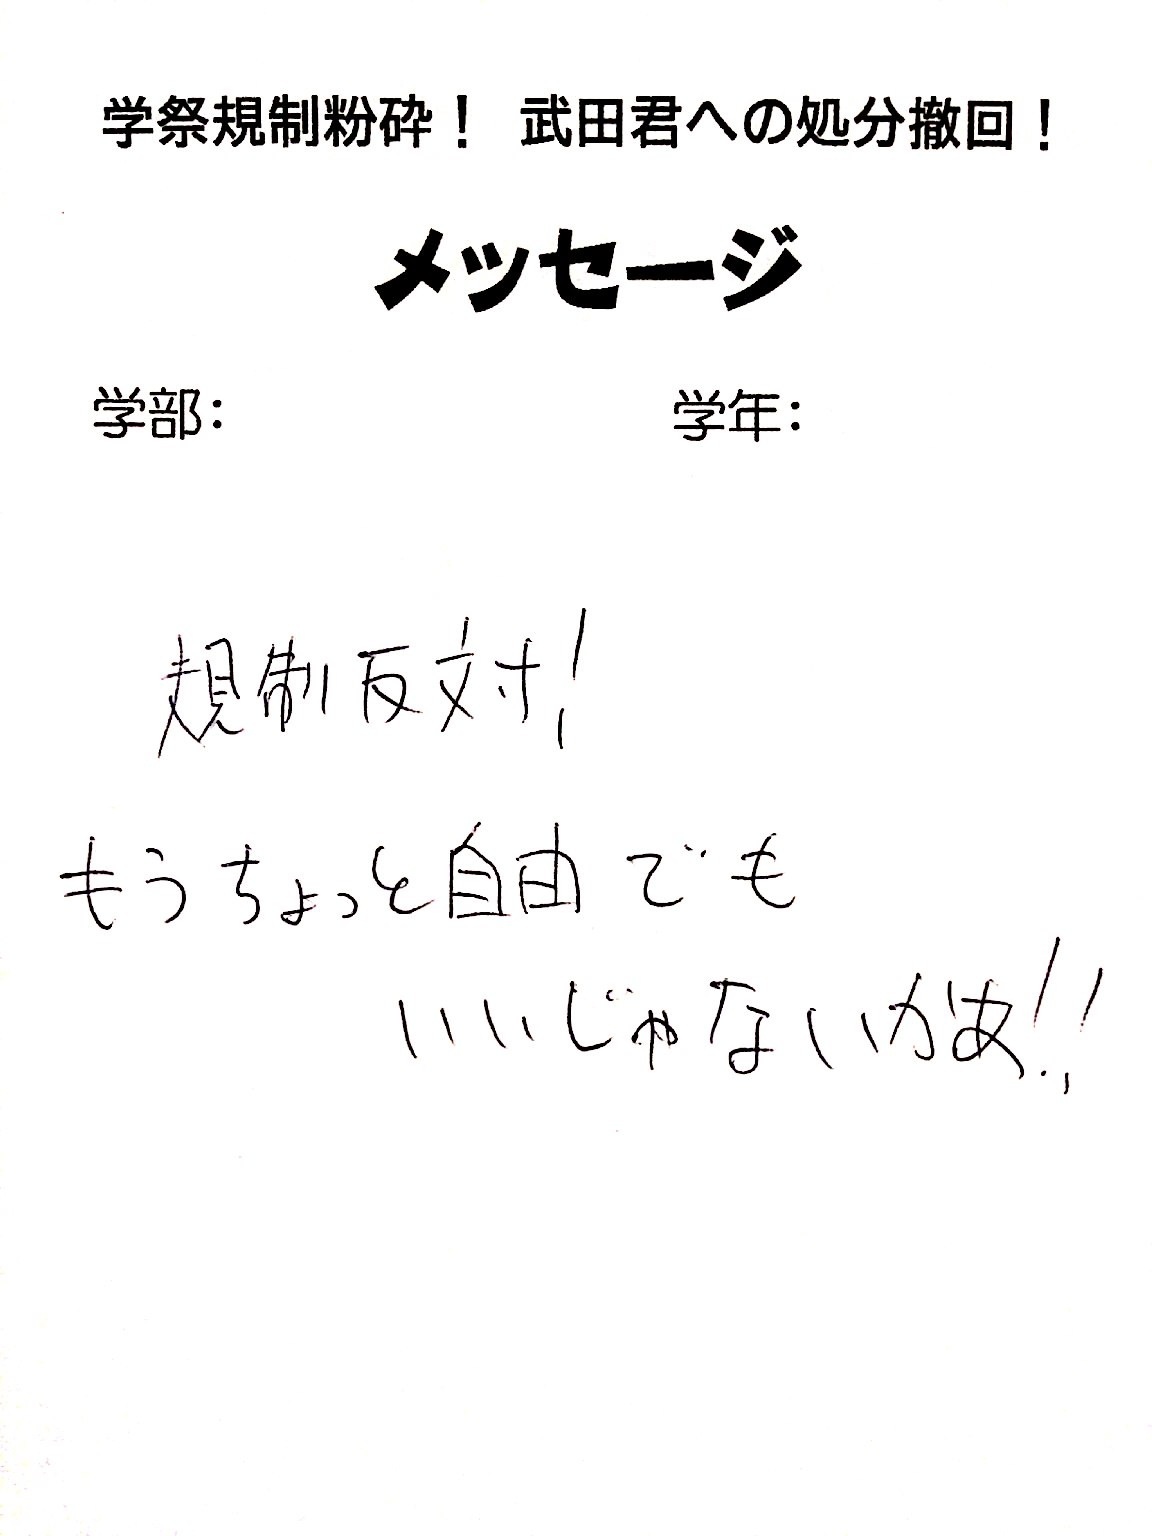 学祭規制粉砕！ 武田君への処分撤回！
メッセージ
学部： 学年：
規制反対！
もうちょっと自由でも
いいじゃないかあ！！